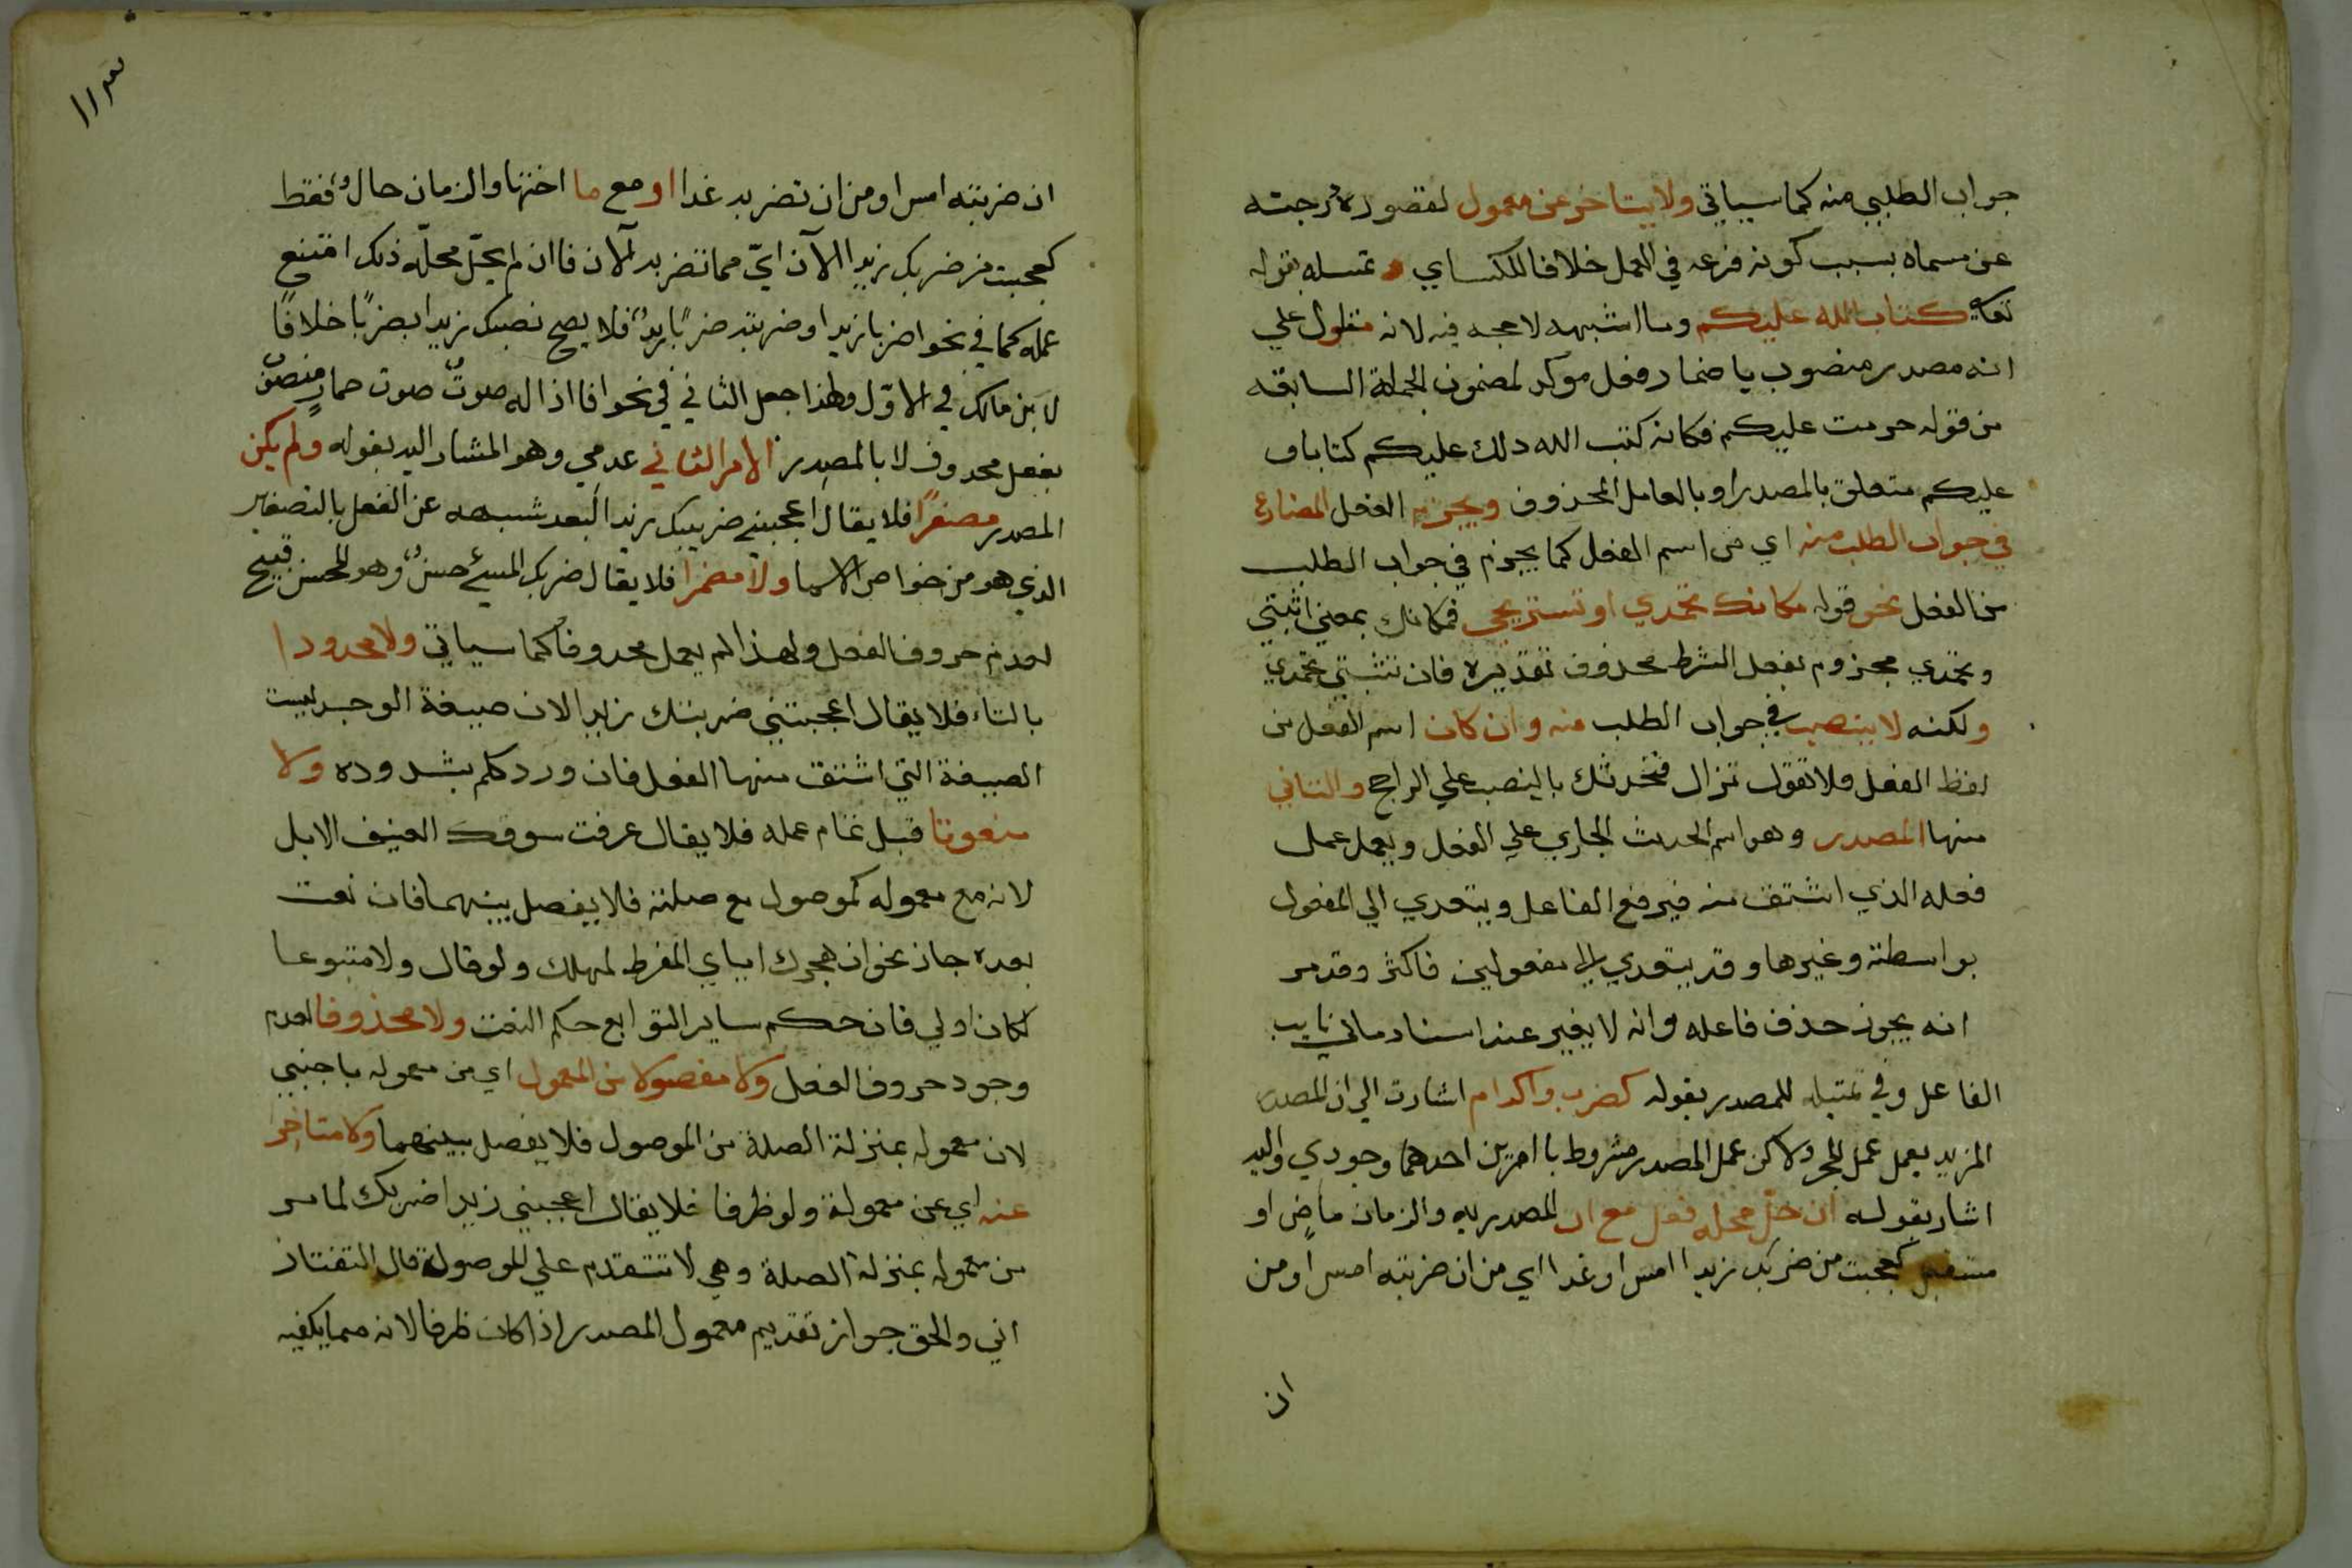 جواب الطلبي منه كما سياتي ولا يتاخر عن معمول لقصور درجته
عن مسماه بسبب كونه فرعه في العمل خلافا للكساي وتمسله بقوله
تعالى كتاب الله عليكم وما اشبهه لا حجه فيه لانه مقلول علي
انه مصدر منصوب باضمار فعل موكد لمضمون الجملة السابقه
من قوله حرمت عليكم فكانه كتب الله ذلك عليكم كتابا و
عليكم متعلق بالمصدر او بالعامل المحذوف ويجزم الفعل المضارع
في جواب الطلب منه اي من اسم الفعل كما يجزم في جواب الطلب
من الفعل نحو قوله مكانك تحمدي او تستريحي فمكانك بمعني اثبتي
وتحمدي مجزوم بفعل الشرط محذوف تقديره فان تثبتي تحمدي
ولكنه لا ينصب في جواب الطلب منه وان كان اسم الفعل من
لفظ الفعل ولا تقول نزال فنحدثك بالنصب علي الراجح والثاني
منها المصدر وهو اسم الحدث الجاري علي الفعل ويعمل عمل
فعله الذي اشتق منه فيرفع الفاعل ويتعدي الي المفعول
بواسطته وغيرها وقد يتعدي الي مفعولين فاكثر وقد مر
انه يجوز حذف فاعله وانه لا يغير عند اسناد مالي نايب
الفاعل وفي تمثيله للمصدر بقوله كضرب واكرام اشارت الي ان المصدر
المزيد يعمل عمل المجرد ولا كن عمل المصدر مشروط باامرين احدهما وجودي واليه
اشار بقوله ان حل محله فعل مع ان المصدريه والزمان ماض او
مستقبل كعجبت من ضربك زيدا امس او غدا اي من ان ضربته امس او من
ان
ان ضربته امس او من ان تضربه غدا او مع ما اختها والزمان حال فقط
كعجبت من ضربك زيدا الآن اي مما تضربه لآن فاان لم يحل محله ذلك امتنع
عمله كما في نحو اضربا زيدا او ضربته ضربا يد فلا يصح نصبك زيدا بضربا خلافا
لا بن مالك في الاول ولهذا جعل الثاني في نحو افا اذا له صوت صوت حمار منصو
بفعل محدوف لا بالمصدر الامر الثاني عدمي وهو المشار اليه بقوله ولم يكن
المصدر مصغرا فلا يقال اعجبني ضريبك زيدا لبعد شبهه عن الفعل بالتصغير
الذي هو من خواص الاسما ولا مضمرا فلا يقال ضربك المسيء حسن وهو للمحسن قبيح
لعدم حروف الفعل ولهذا لم يعمل محدوفا كما سياتي ولا محدودا
بالتاء فلا يقال اعجبتني ضربتك زيدا لان صيغة الوحد ليست
الصيغة التي اشتق منها الفعل فان ورد كلم بشدوده ولا
منعوتا قبل تمام عمله فلا يقال عرفت سوقك العنيف الابل
لانه مع معموله كموصول مع صلته فلا يفصل بينهما فان نعت
بعده جاز نحو ان هجرك اياي المفرط لمهلك ولو قال ولا متبوعا
لكان اولي فان حكم ساير التوابع حكم النعت ولا محذوفا لعدم
وجود حروف الفعل ولا مفصولا من المعمول اي من معموله باجنبي
لان معموله بمنزلة الصلة من الموصول فلا يفصل بينهما ولا متاخرا
عنه اي عن معمولة ولو ظرفا فلا يقال اعجبني زيدا ضربك لما مر
من معموله بمنزلة الصلة وهي لا تتقدم علي الموصولة قال التفتاز
اني والحق جواز تقديم معمول المصدر اذا كان ظرفا لانه مما يكفيه